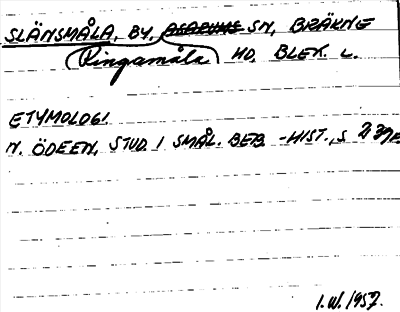 SLÄNSMÅLA, BY, ASARUMS SN, BRÄKNE
Ringamåla HD, BLEK. L.
ETYMOLOGI
N. ÖDEEN, STUD. I SMÅL. BEB. -HIST., S
I.W. 1957.